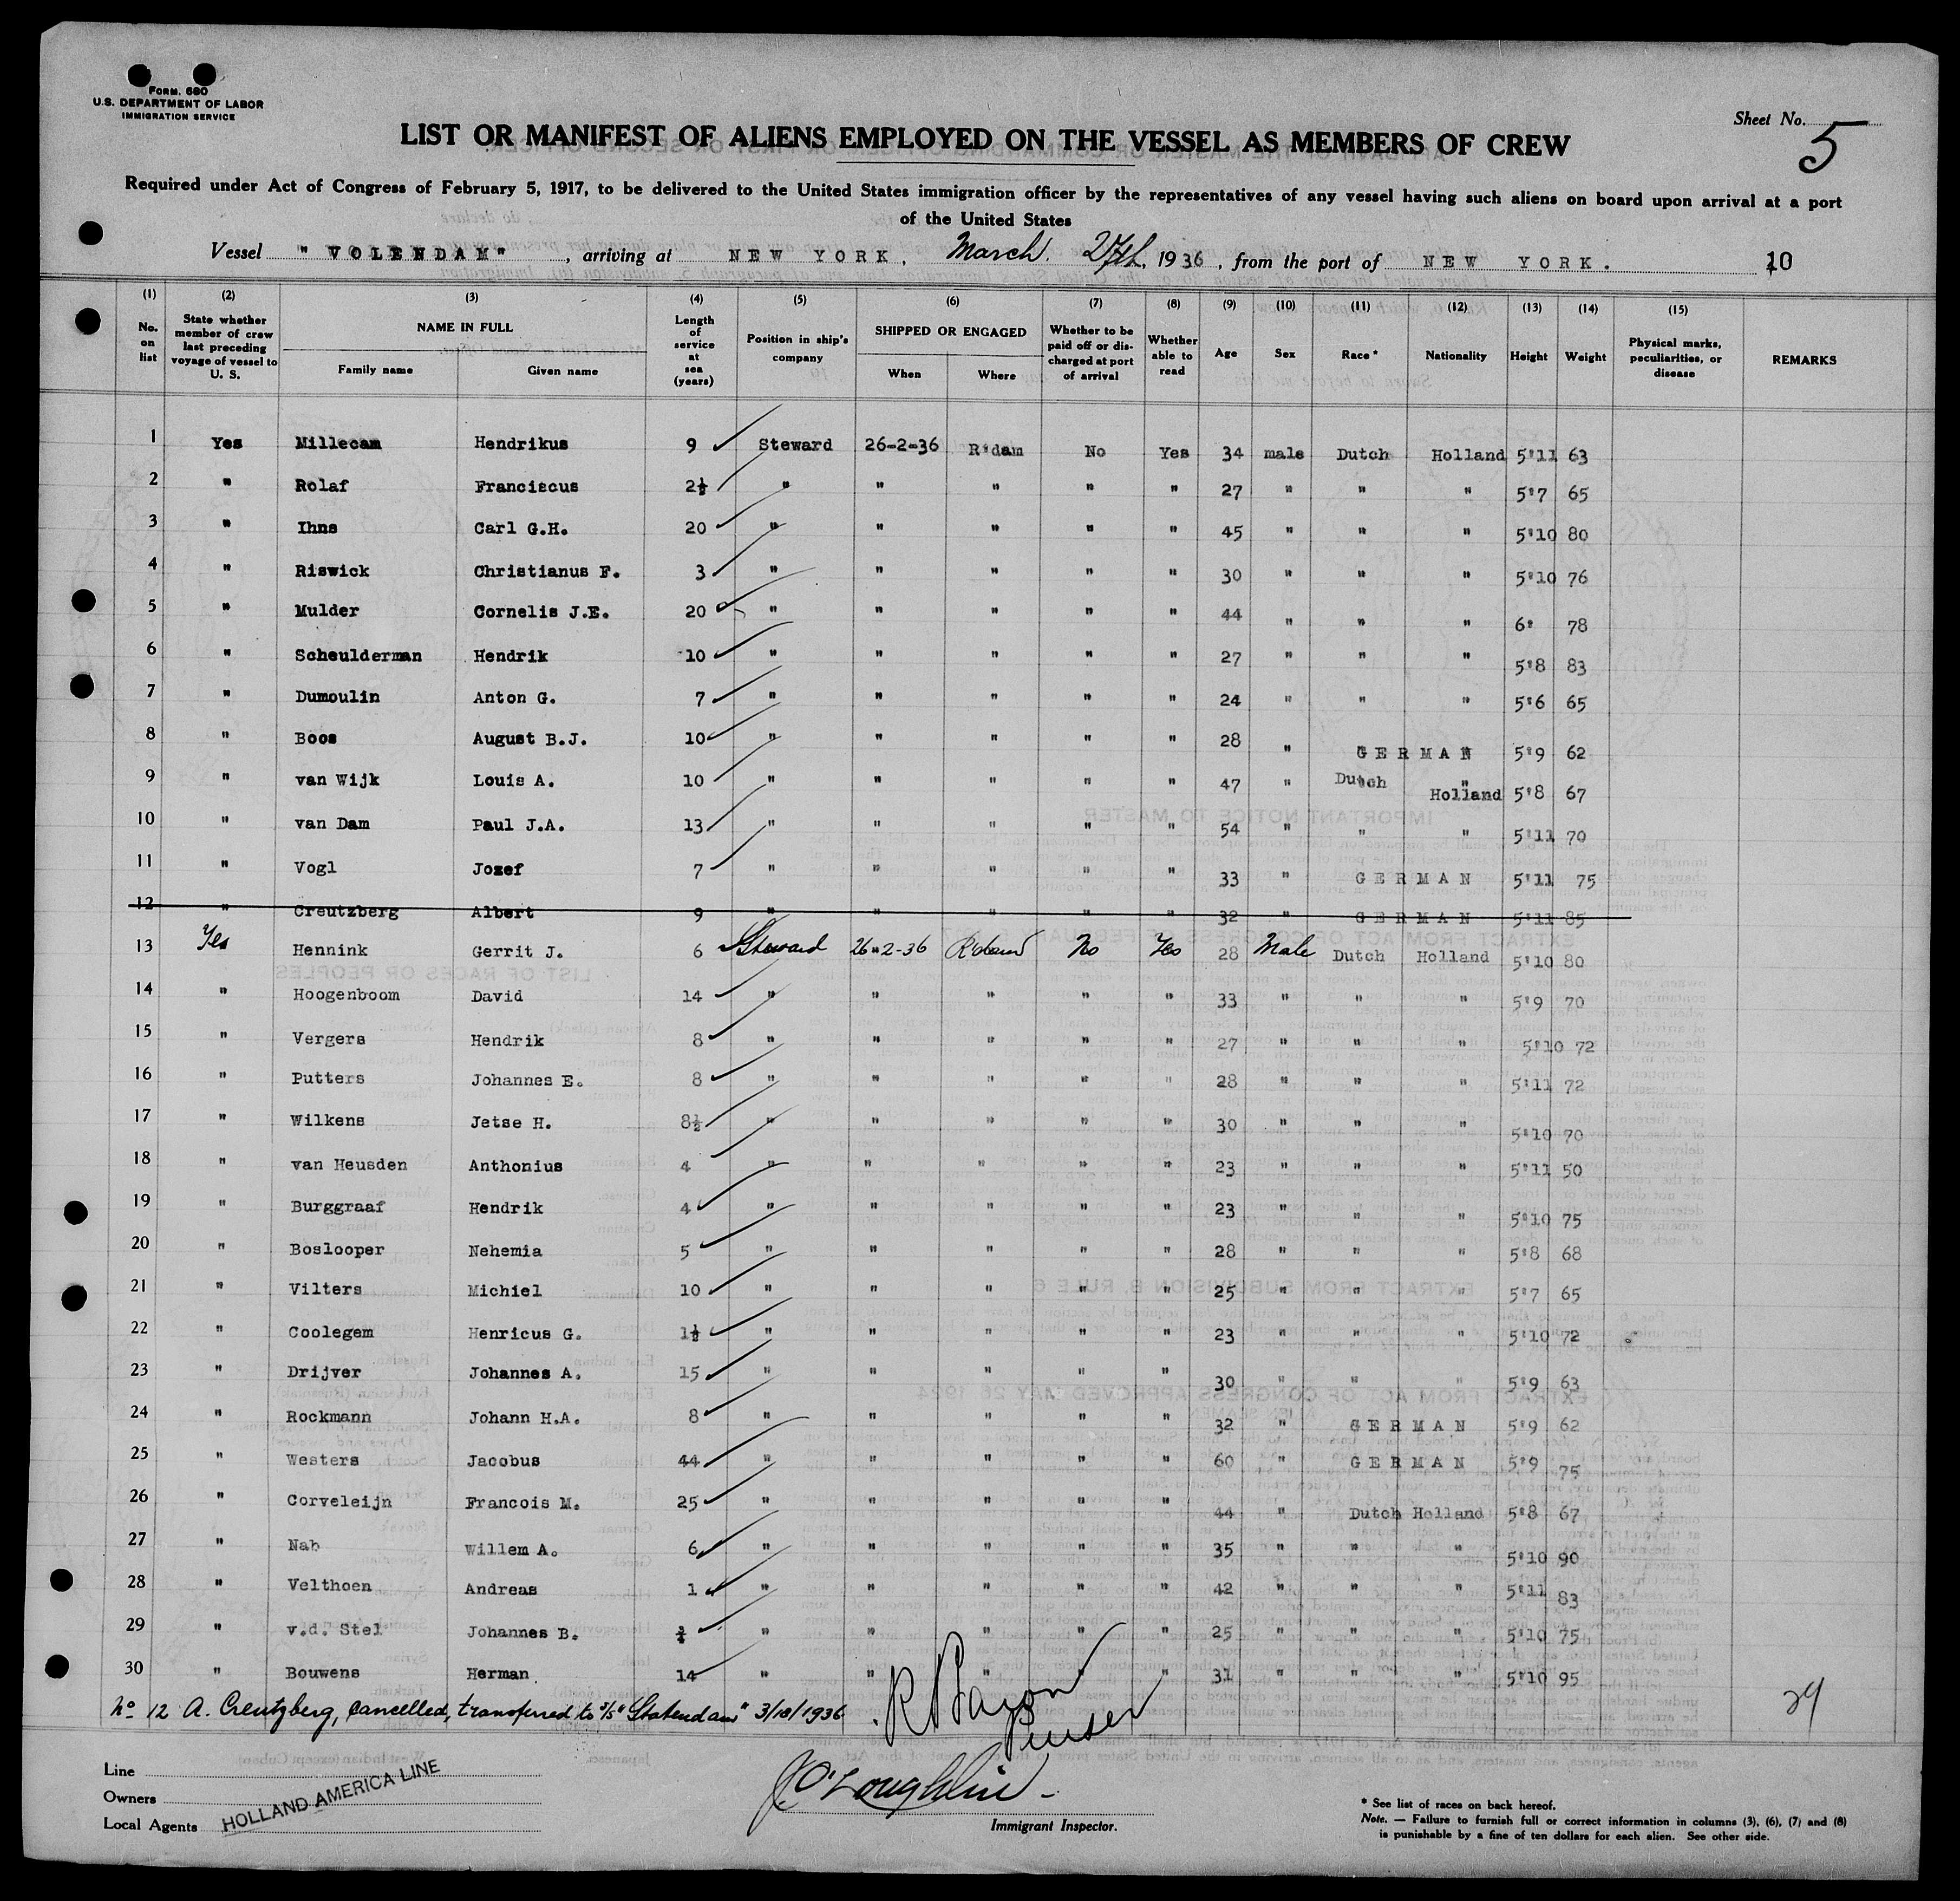 FORM. 680
U.S. DEPARTMENT OF LABOR
IMMIGRATION SERVICE
Sheet No. 5
LIST OR MANIFEST OF ALIENS EMPLOYED ON THE VESSEL AS MEMBERS OF CREW
Required under Act of Congress of February 5, 1917, to be delivered to the United States immigration officer by the representatives of any vessel having such aliens on board upon arrival at a port
of the United States
Vessel "VOLENDAM", arriving at NEW YORK, March. 27th, 1936, from the port of NEW YORK. 10
(1) No. on list (2) State whether member of crew last preceding voyage of vessel to U. S. (3) NAME IN FULL Family name Given name (4) Length of service at sea (years) (5) Position in ship's company (6) SHIPPED OR ENGAGED When Where (7) Whether to be paid off or discharged at port of arrival (8) Whether able to read (9) Age (10) Sex (11) Race * (12) Nationality (13) Height (14) Weight (15) Physical marks, peculiarities, or disease REMARKS
1 Yes Millecam Hendrikus 9 Steward 26-2-36 R'dam No Yes 34 male Dutch Holland 5'11 63
2 " Rolaf Franciscus 2½ " " " " " 27 " " " 5'7 65
3 " Ihns Carl G.H. 20 " " " " " 45 " " " 5'10 80
4 " Riswick Christianus F. 3 " " " " " 30 " " " 5'10 76
5 " Mulder Cornelis J.E. 20 " " " " " 44 " " " 6' 78
6 " Scheulderman Hendrik 10 " " " " " 27 " " " 5'8 83
7 " Dumoulin Anton G. 7 " " " " " 24 " " " 5'6 65
8 " Boos August B.J. 10 " " " " " 28 " GERMAN 5'9 62
9 " van Wijk Louis A. 10 " " " " " 47 " Dutch Holland 5'8 67
10 " van Dam Paul J.A. 13 " " " " " 54 " " " 5'11 70
11 " Vogl Jozef 7 " " " " " 33 " GERMAN 5'11 75
12 " Creutzberg Albert 9 " " " " " 32 " GERMAN 5'11 85
13 Yes Hennink Gerrit J. 6 Steward 26-2-36 No Yes 28 Male Dutch Holland 5'10 80
14 " Hoogenboom David 14 " " " " " 33 " " " 5'9 70
15 " Vergers Hendrik 8 " " " " " 27 " " " 5'10 72
16 " Putters Johannes E. 8 " " " " " 28 " " " 5'11 72
17 " Wilkens Jetse H. 8½ " " " " " 30 " " " 5'10 70
18 " van Heusden Anthonius 4 " " " " " 23 " " " 5'11 50
19 " Burggraaf Hendrik 4 " " " " " 23 " " " 5'10 75
20 " Boslooper Nehemia 5 " " " " " 28 " " " 5'8 68
21 " Vilters Michiel 10 " " " " " 25 " " " 5'7 65
22 " Coolegem Henricus G. 1½ " " " " " 23 " " " 5'10 72
23 " Drijver Johannes A. 15 " " " " " 30 " " " 5'9 63
24 " Rockmann Johann H.A. 8 " " " " " 32 " GERMAN 5'9 62
25 " Westers Jacobus 44 " " " " " 60 " GERMAN 5'9 75
26 " Corveleijn Francois M. 25 " " " " " 44 " Dutch Holland 5'8 67
27 " Nab Willem A. 6 " " " " " 35 " " " 5'10 90
28 " Velthoen Andreas 1 " " " " " 42 " " " 5'11 83
29 " v.d. Stel Johannes B. " " " " " 25 " " " 5'10 75
30 " Bouwens Herman 14 " " " " " 31 " " " 5'10 95
No 12 A. Creutzberg, cancelled, transferred to s/s "Statendam" 3/18/1936
Purser
29
Line
Owners
Local Agents
HOLLAND AMERICA LINE
J O'Loughlin
Immigrant Inspector.
* See list of races on back hereof.
Note. — Failure to furnish full or correct information in columns (3), (6), (7) and (8)
is punishable by a fine of ten dollars for each alien. See other side.